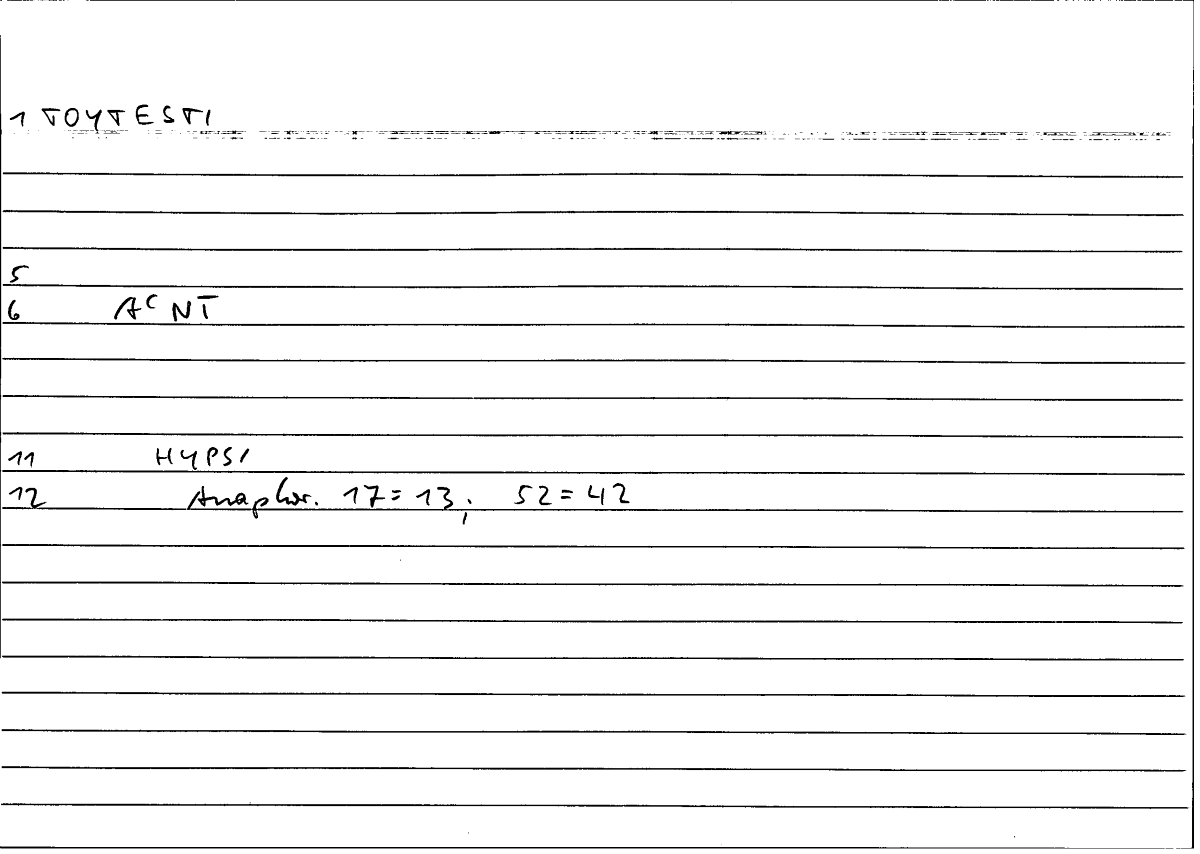 1 TOYTESTI
5
6 AC NT
11 HYPSI
12 Anaphor. 17=13; 52=42